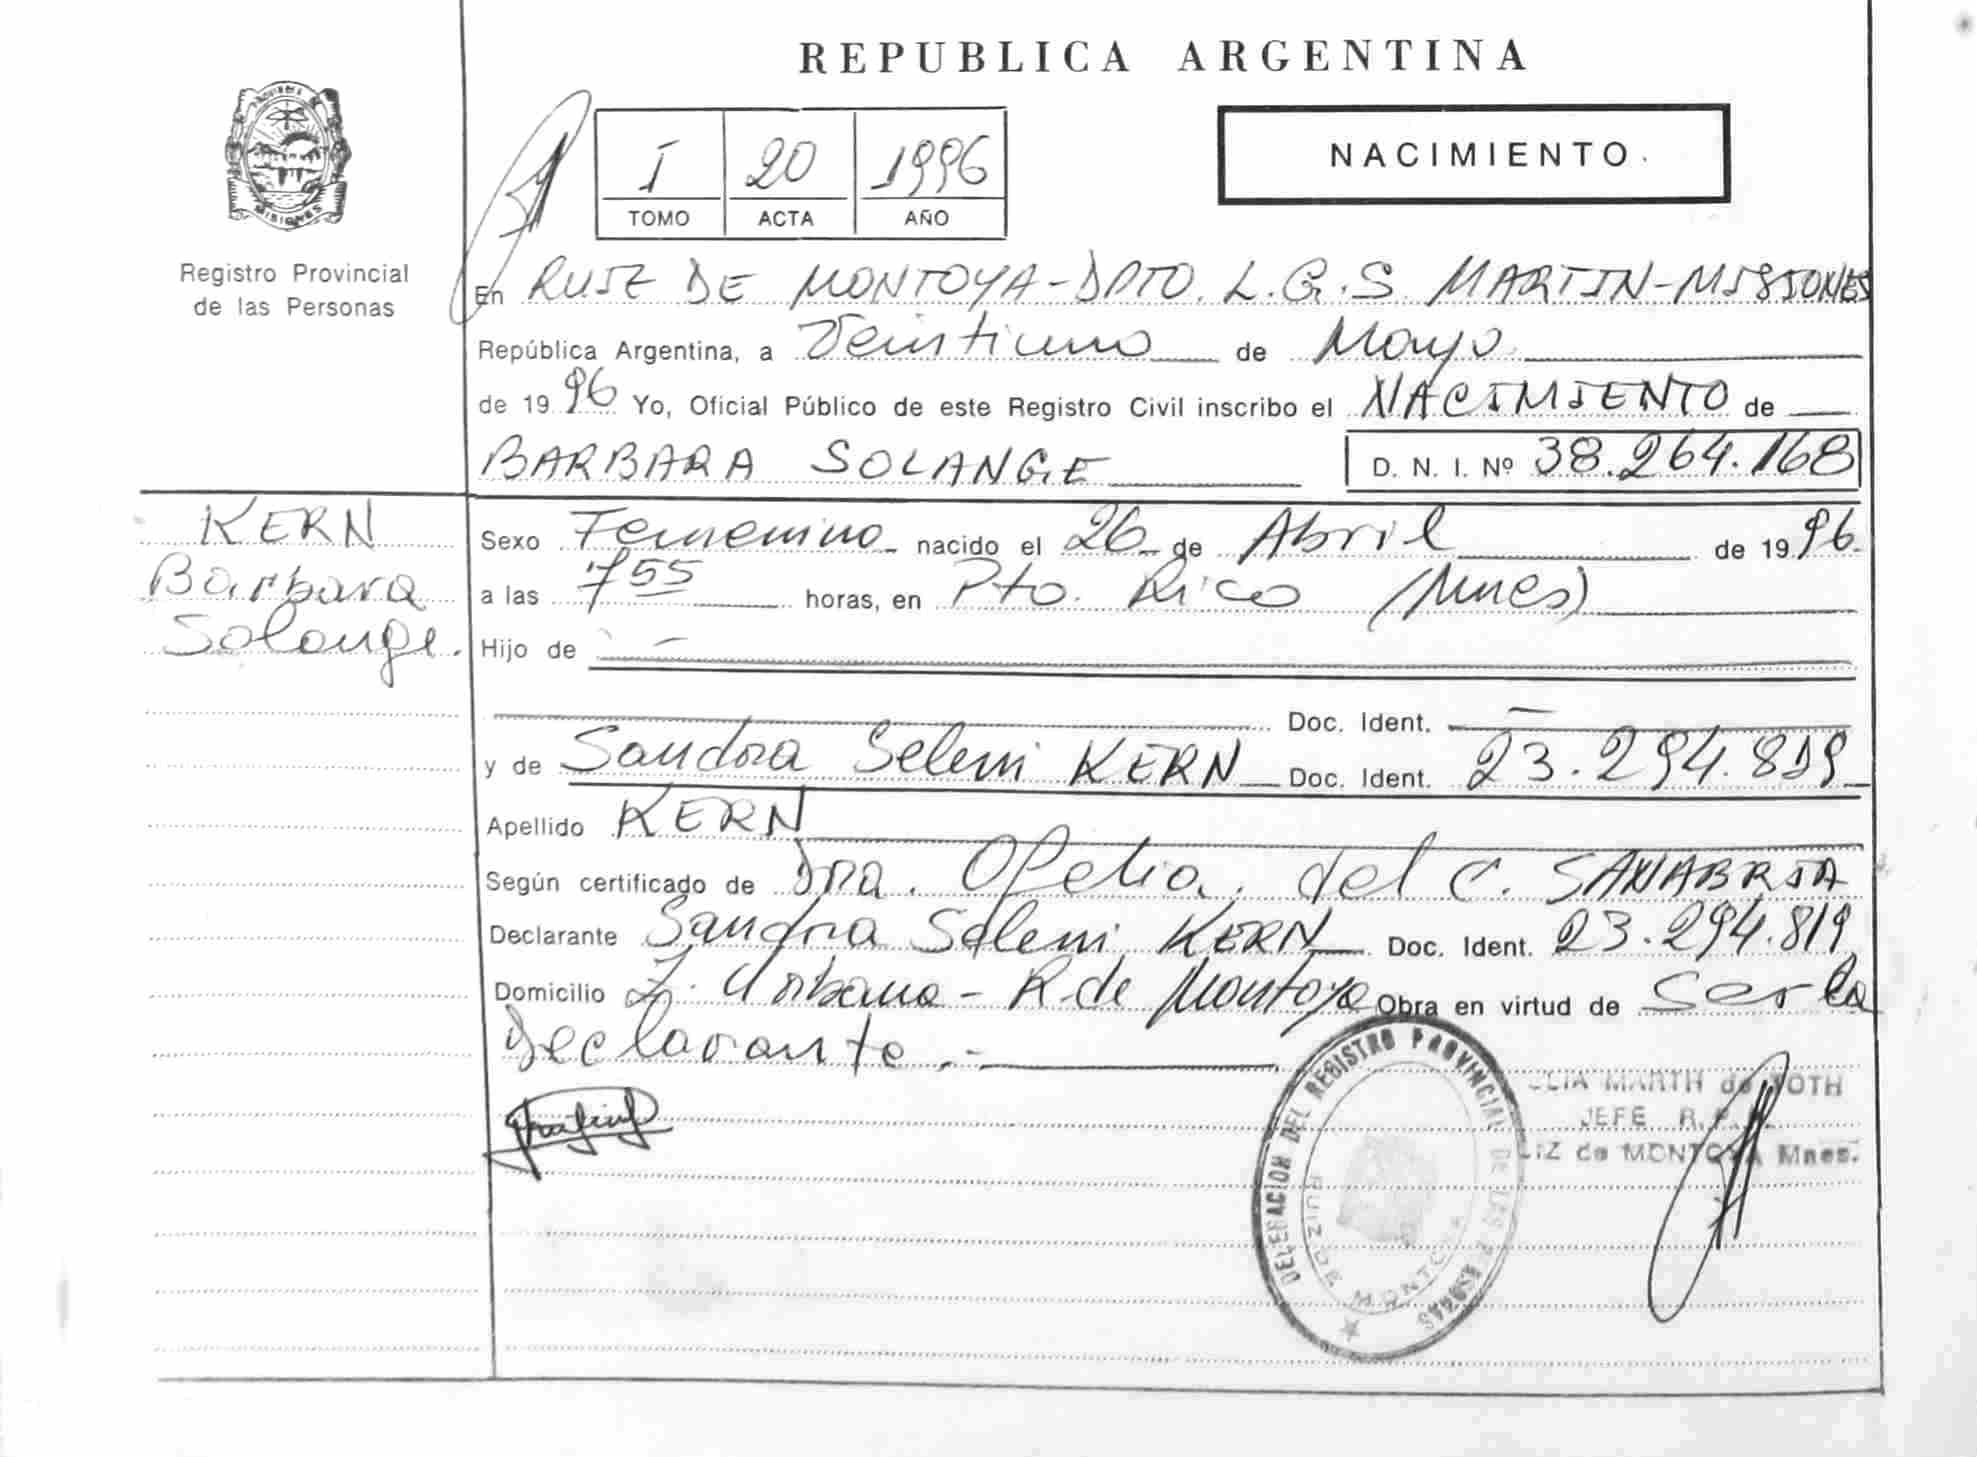 REPUBLICA ARGENTINA
MISIONES
Registro Provincial
de las Personas
I 20 1996
TOMO ACTA AÑO
NACIMIENTO
En RUIZ DE MONTOYA-DPTO. L.G.S. MARTIN-MISIONES
República Argentina, a Veintiuno de Mayo
de 1996 Yo, Oficial Público de este Registro Civil inscribo el NACIMIENTO de
BARBARA SOLANGE D. N. I. Nº 38.264.168
KERN
Barbara
Solange.
Sexo Femenino nacido el 26 de Abril de 1996
a las 755 horas, en Pto. Rico (Mnes)
Hijo de
Doc. Ident.
y de Sandra Seleni KERN Doc. Ident. 23.294.819
Apellido KERN
Según certificado de Dra. Ofelia del C. SANABRIA
Declarante Sandra Seleni KERN Doc. Ident. 23.294.819
Domicilio Z. Urbana - R. de Montoya Obra en virtud de Ser la
Declarante.-
MARTH de TOTH
JEFE R.P.
de MONTOYA Mnes.
DELEGACION DEL REGISTRO PROVINCIAL DE LAS PERSONAS
RUIZ DE MONTOYA